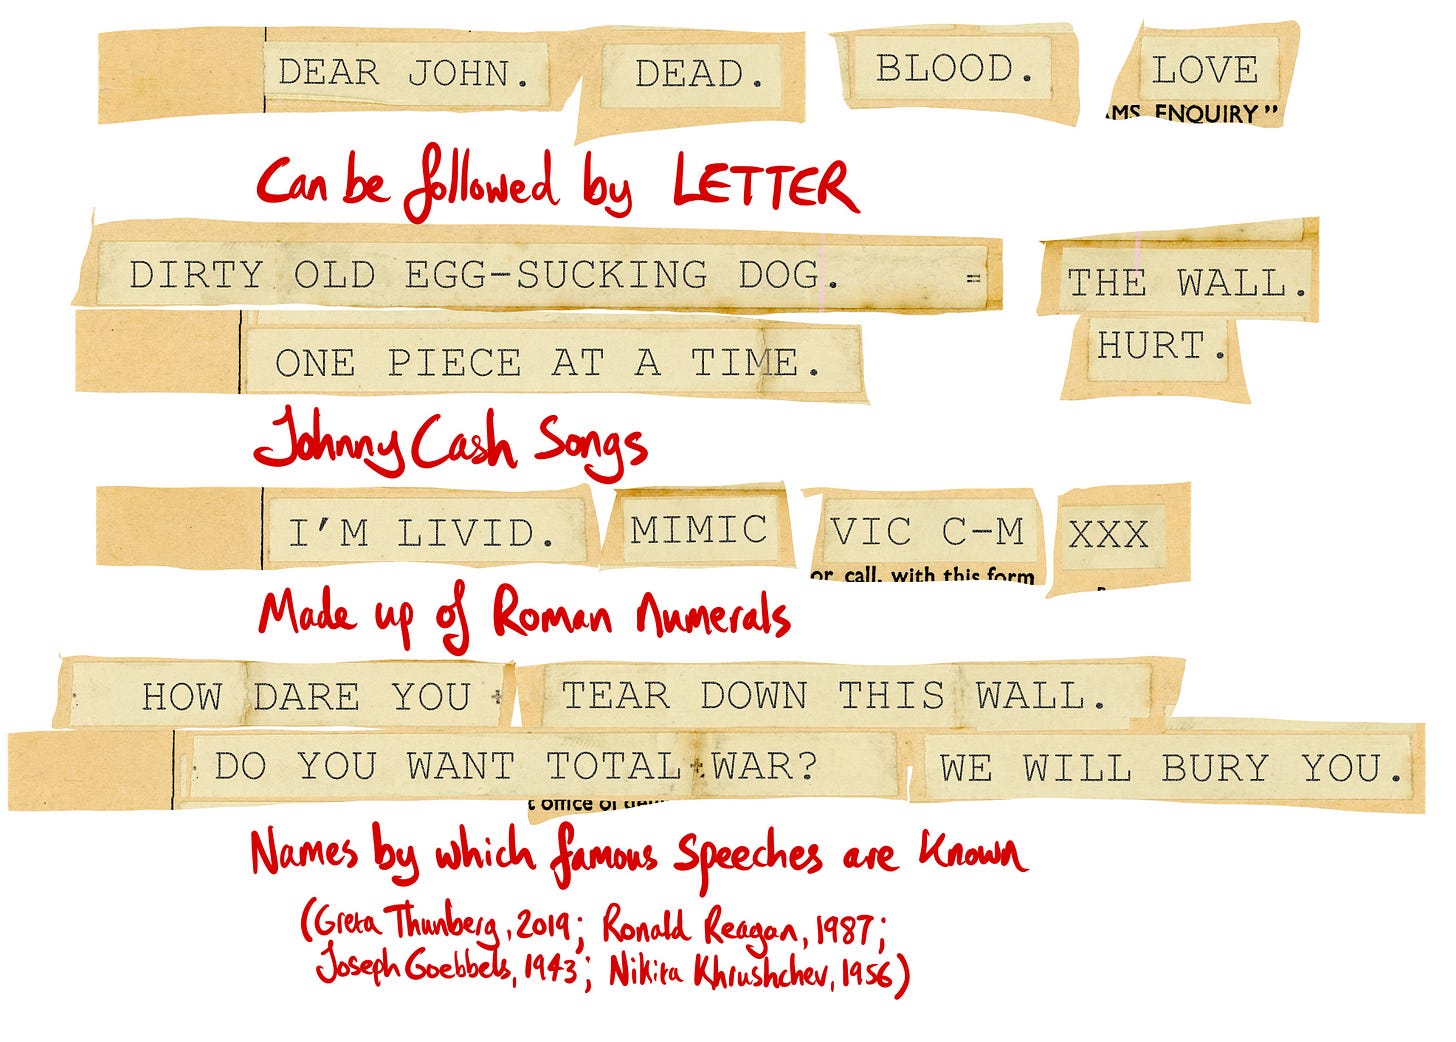 DEAR JOHN. DEAD. BLOOD. LOVE
MS ENQUIRY"
Can be followed by LETTER
DIRTY OLD EGG-SUCKING DOG. = THE WALL.
ONE PIECE AT A TIME. HURT.
Johnny Cash Songs
I'M LIVID. MIMIC VIC C-M XXX
or call, with this form
Made up of Roman Numerals
HOW DARE YOU + TEAR DOWN THIS WALL.
DO YOU WANT TOTAL WAR? WE WILL BURY YOU.
t office or
Names by which famous speeches are known
(Greta Thunberg, 2019; Ronald Reagan, 1987;
Joseph Goebbels, 1943; Nikita Khrushchev, 1956)